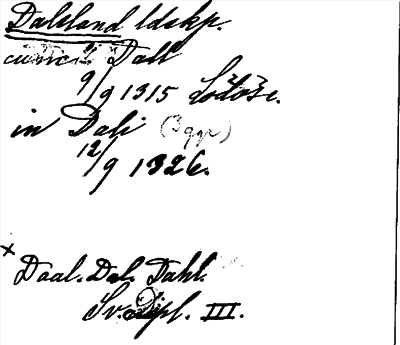 Dalsland ldskp.
Dall
9/9 1315 Lödöse.
in Dali (3 ggr)
12/9 1326.
x
Daal. Dal. Dahl.
Sv. Dipl. III.